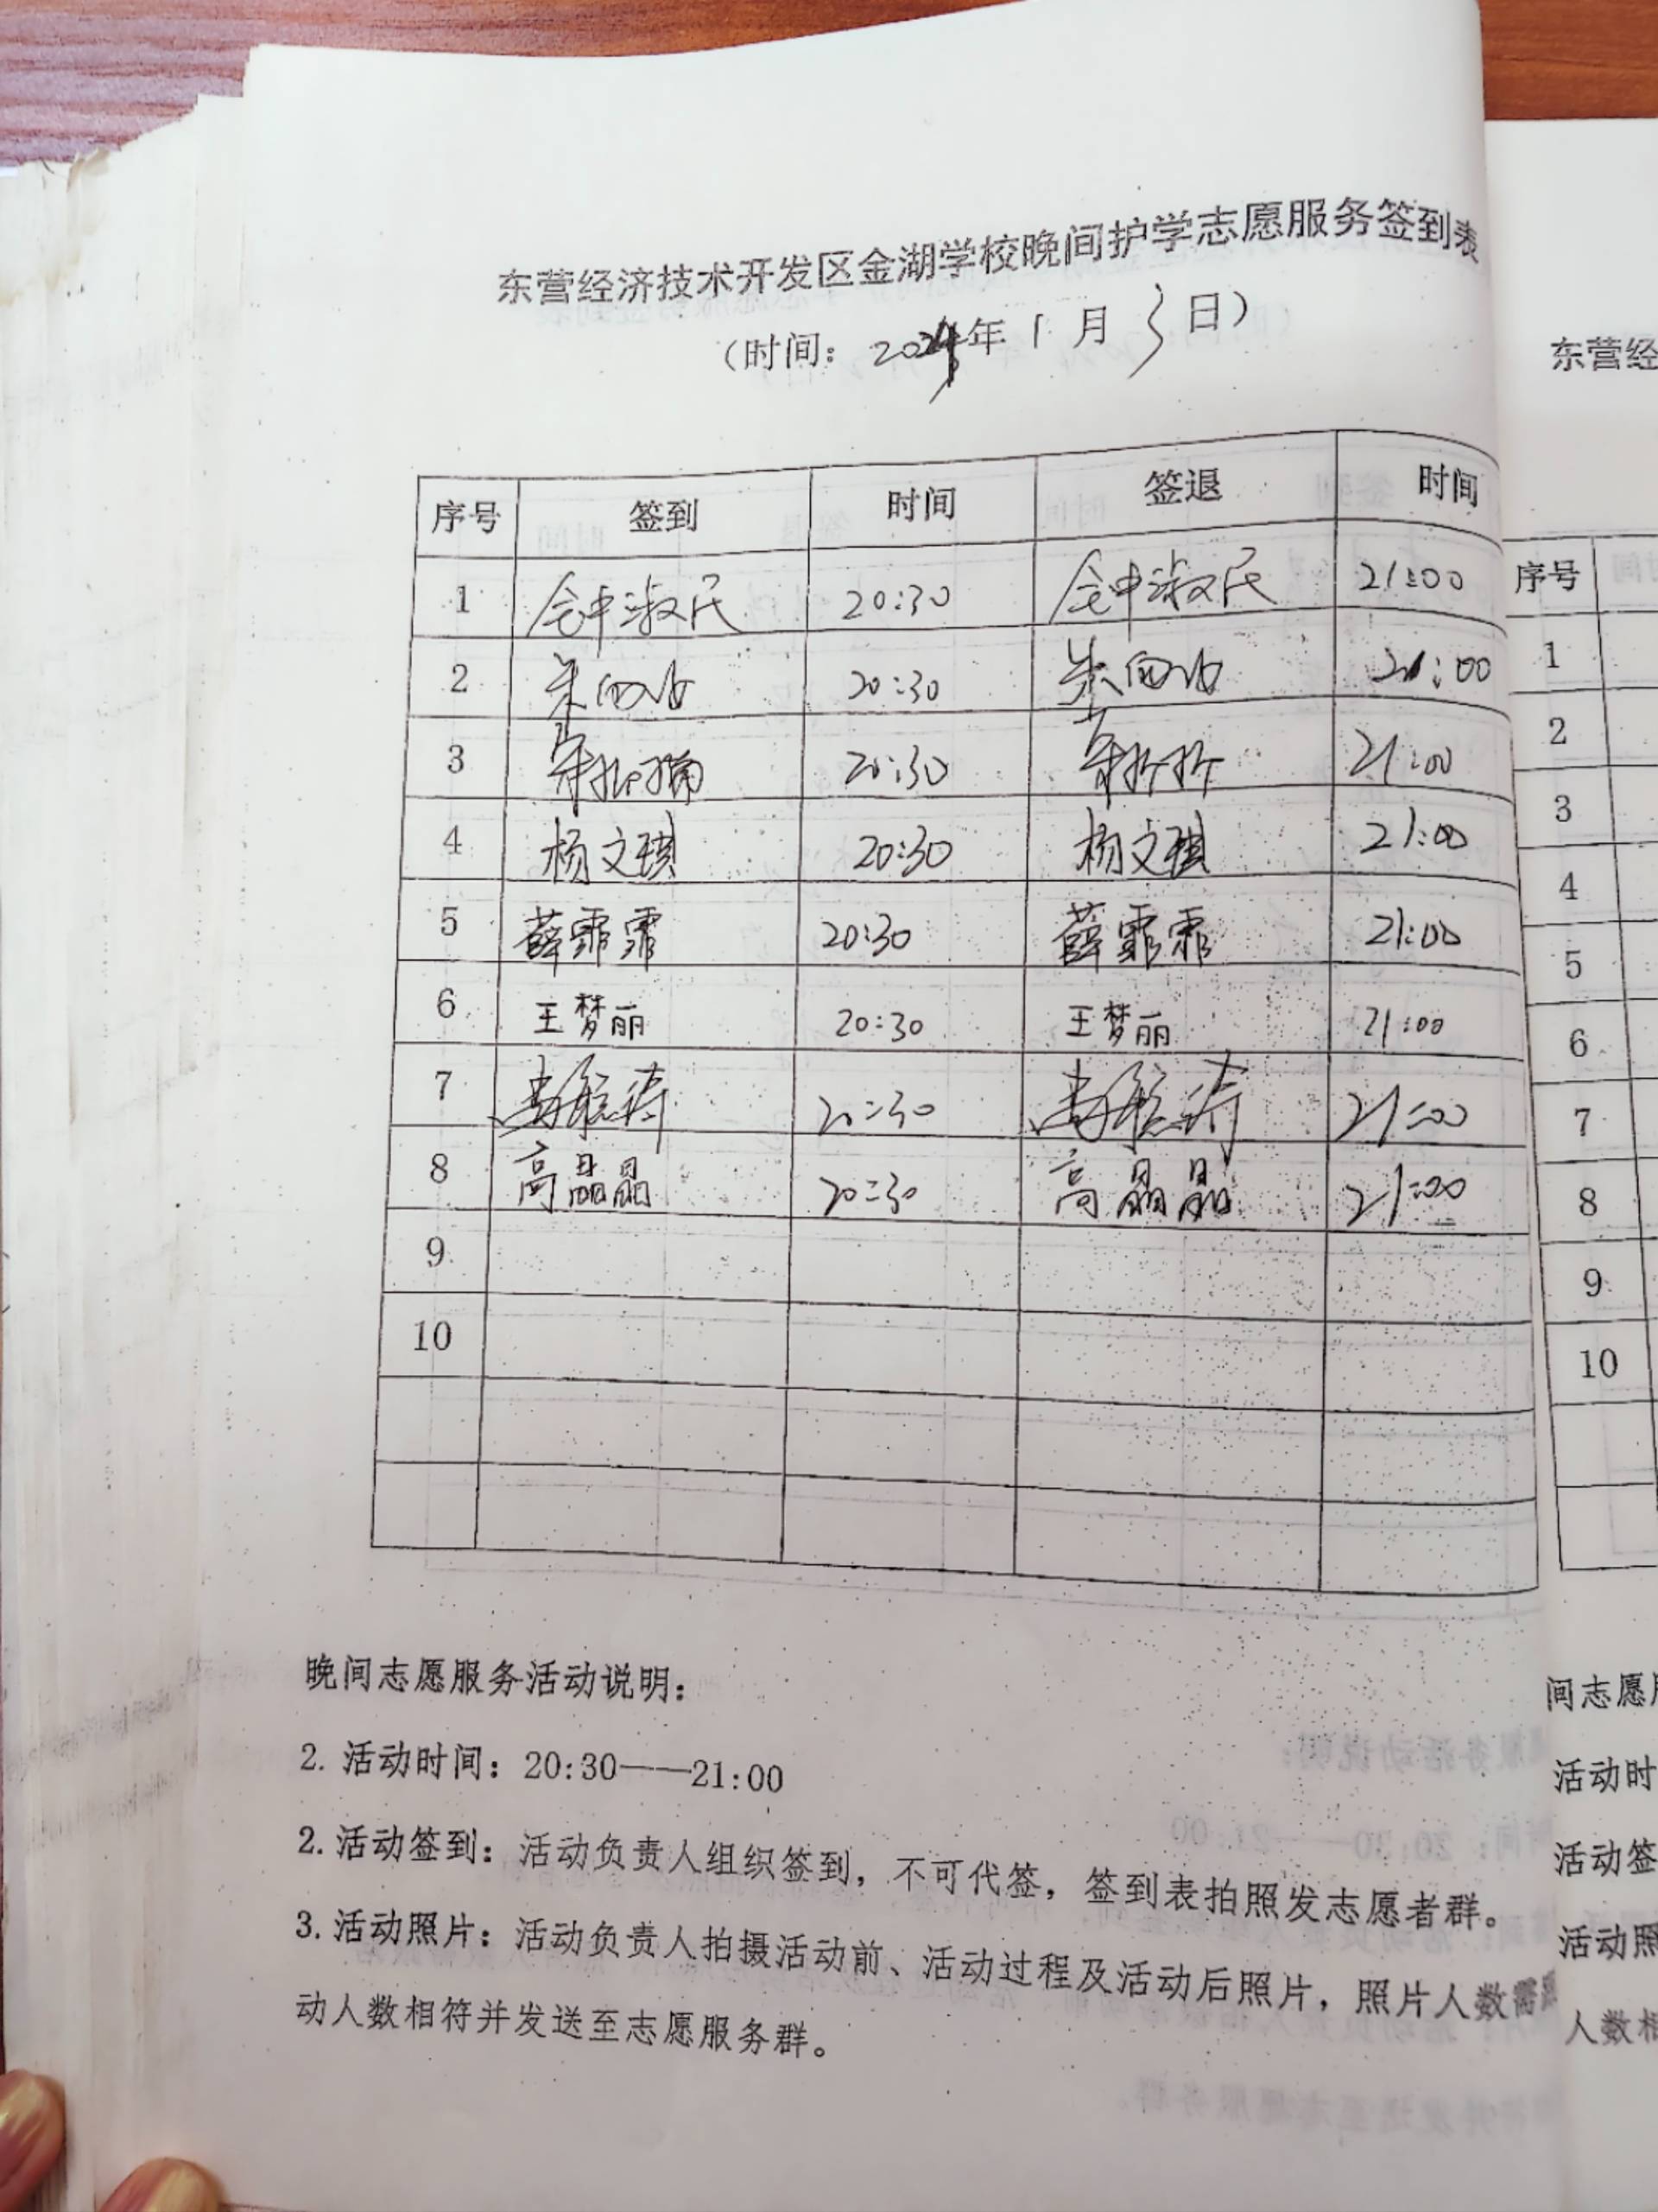 东营经济技术开发区金湖学校晚间护学志愿服务签到表
（时间：2024年1月3日）
序号 签到 时间 签退 时间
1 淑民 20:30 淑民 21:00
2 朱 20:30 朱 21:00
3 20:30 21:00
4 杨文琪 20:30 杨文琪 21:00
5 薛霏霏 20:30 薛霏霏 21:00
6 王梦丽 20:30 王梦丽 21:00
7 20:30 21:00
8 高晶晶 20:30 高晶晶 21:00
9
10
晚间志愿服务活动说明：
2. 活动时间：20:30——21:00
2. 活动签到：活动负责人组织签到，不可代签，签到表拍照发志愿者群。
3. 活动照片：活动负责人拍摄活动前、活动过程及活动后照片，照片人数需
动人数相符并发送至志愿服务群。
东营经
序号
1
2
3
4
5
6
7
8
9
10
间志愿
活动时
活动签
活动照
人数相